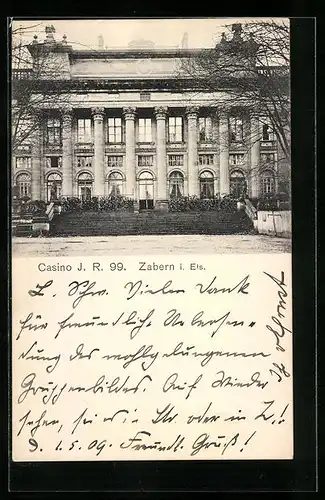 Casino J. R. 99. Zabern i. Els.
L. Schw. Vielen Dank
für freundlich. Übersen=
dung des wohlgelungenen
Gruppenbildes. Auf Wieder
sehen, sei es in Str. oder in Z.!
D. 1.5.09. Freundl. Gruß!